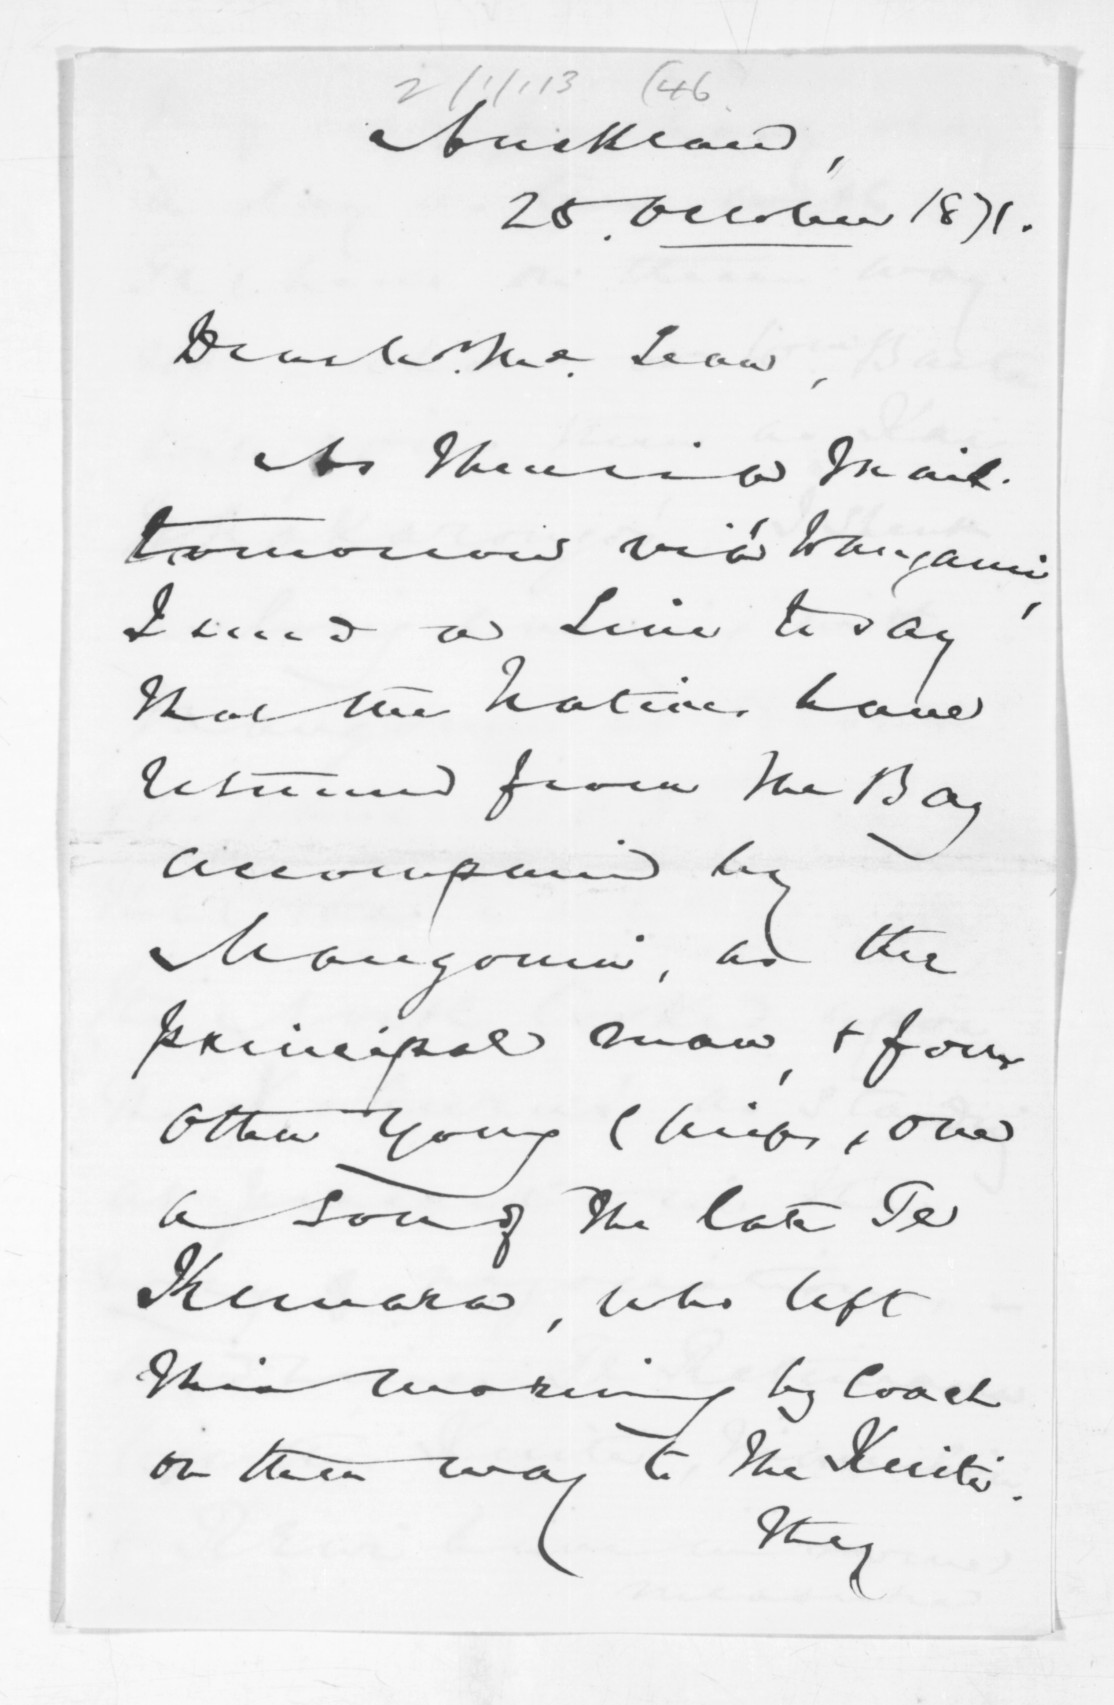 2/1/113 (46
Auckland,
25. October 1871.
Dear Mr. Mc. Lean,
As there is a Mail
tomorrow viâ Wanganui,
I send a line to say
that the Natives have
returned from the Bay
accompanied by
Mangonui, as the
principal man, & four
other young Chiefs, one
a son of the late Te
Kemara, who left
this morning by Coach
on their way to the Kuiti.
they